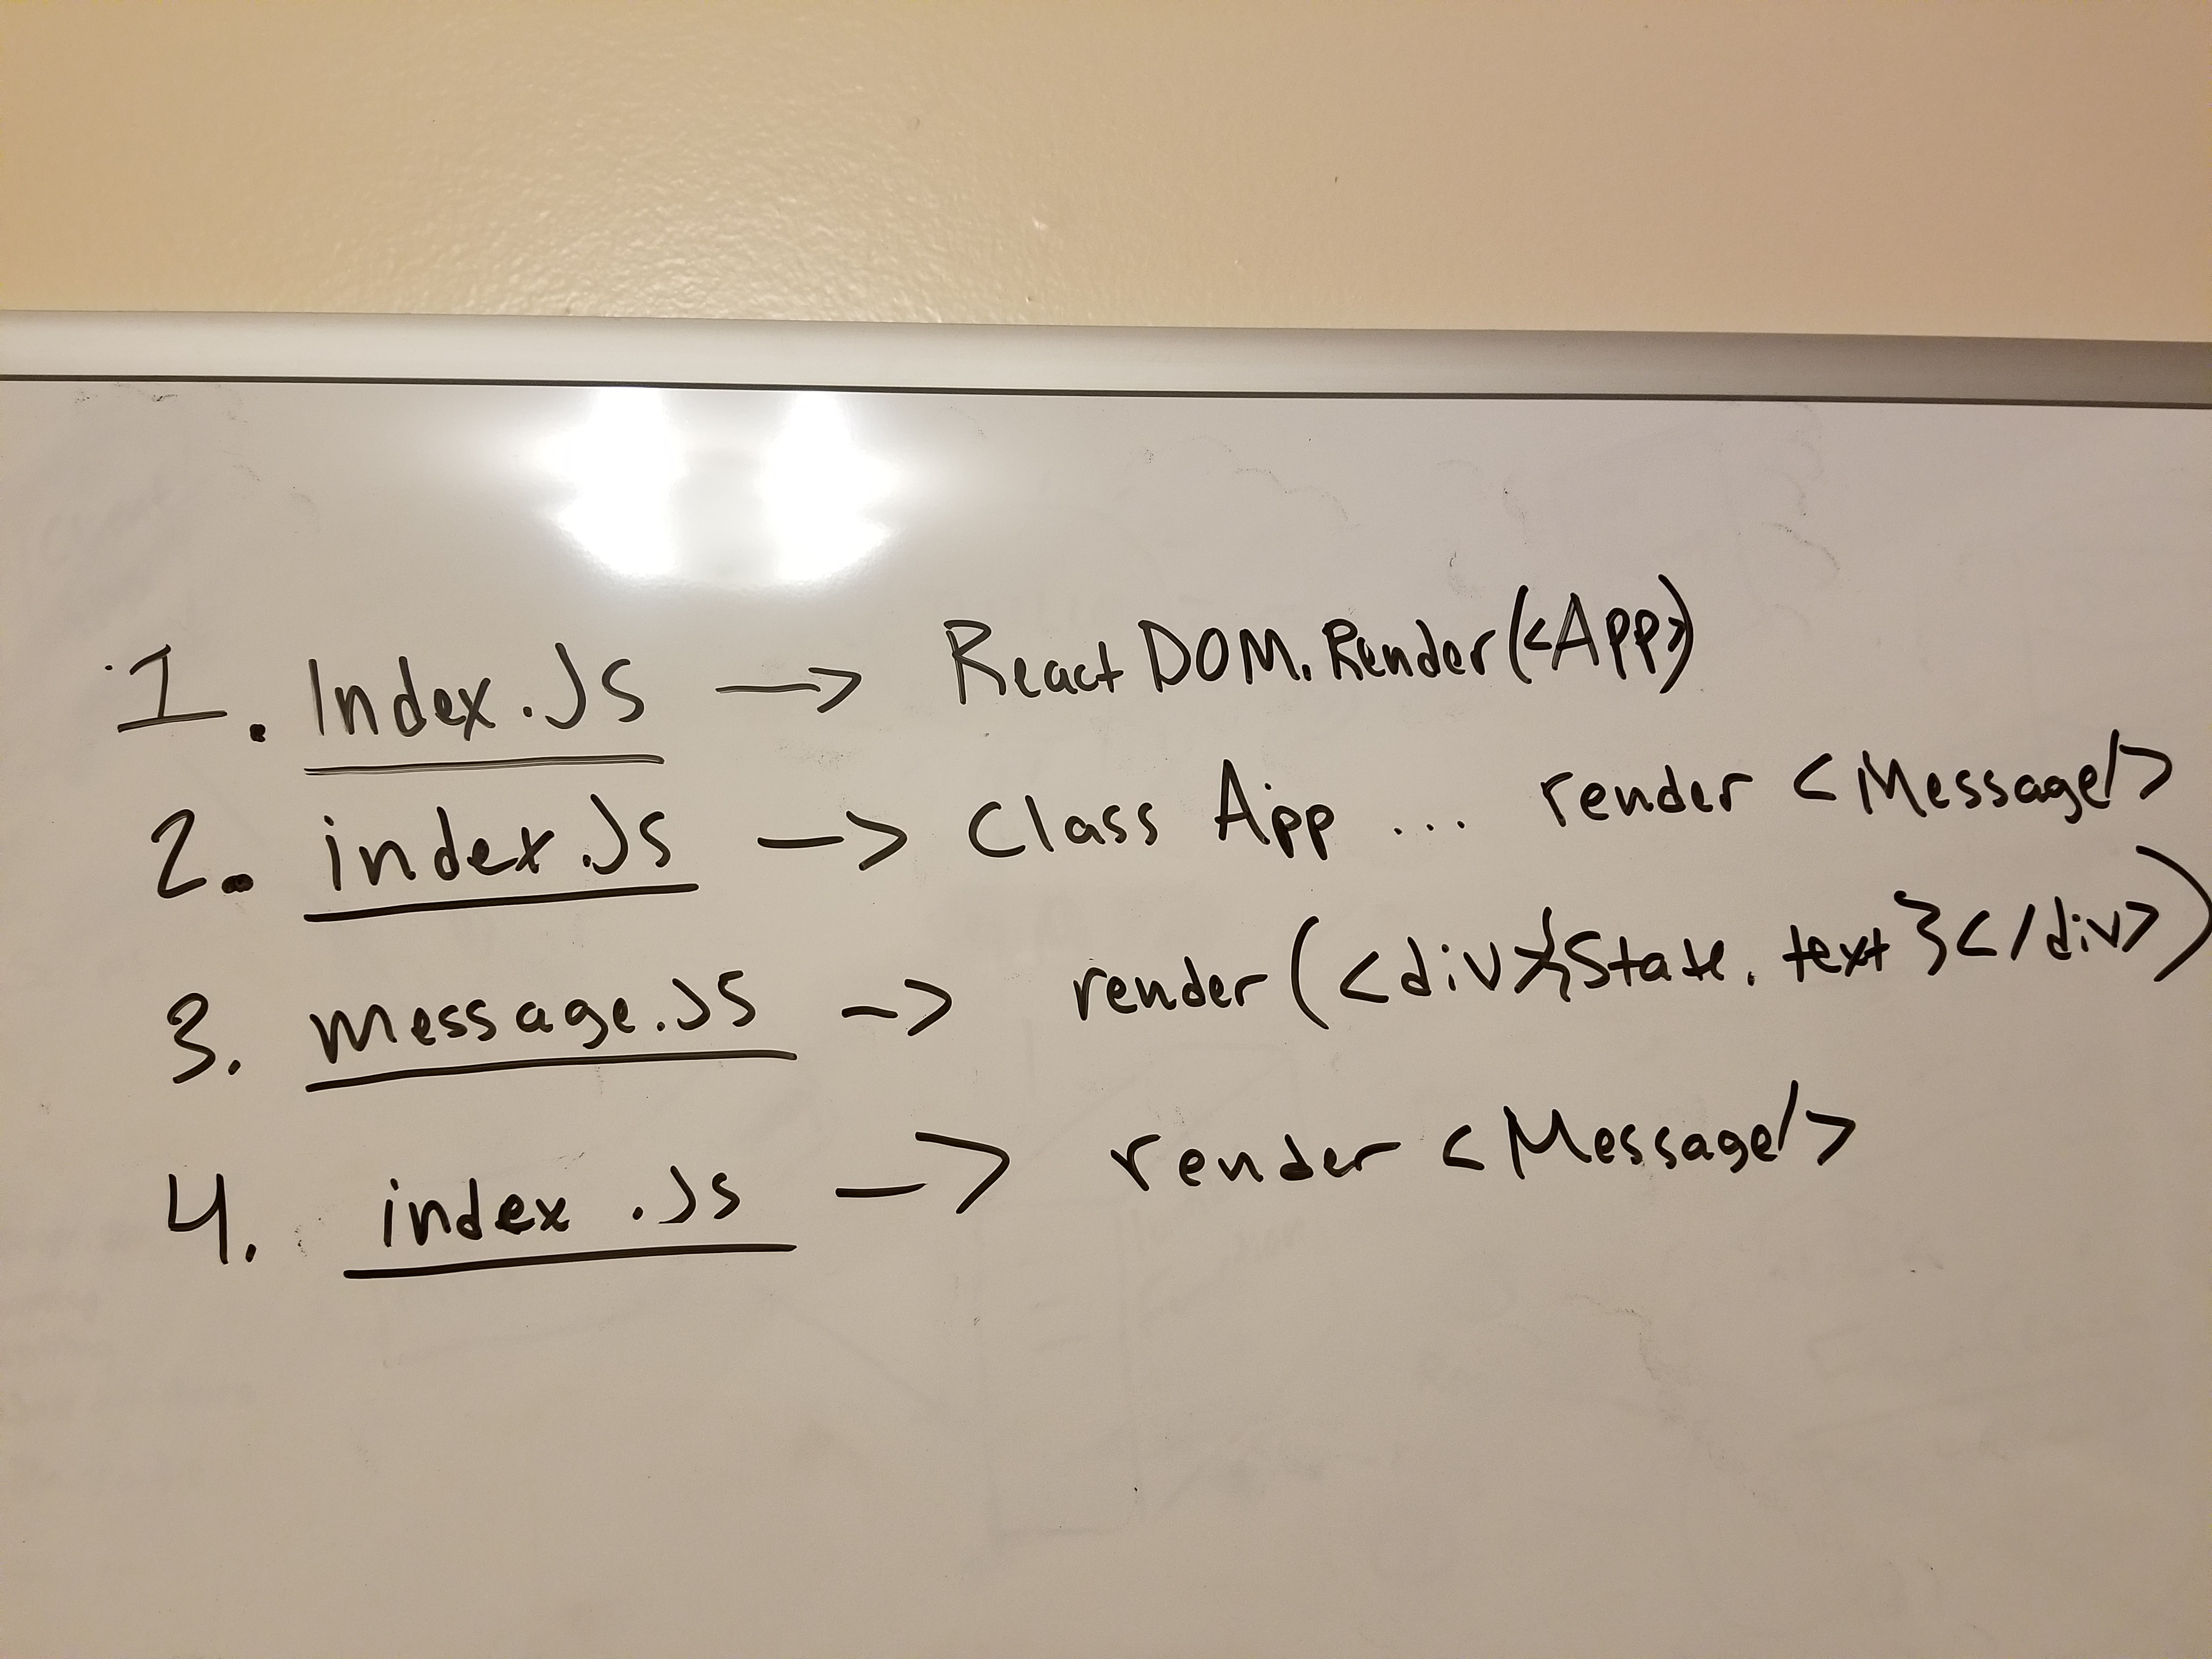 1. Index.JS —> ReactDOM.Render(<App>)
2. index.Js —> Class App ... render <Message/>
3. message.JS -> render(<div>{State.text}</div>)
4. index.Js —> render <Message/>